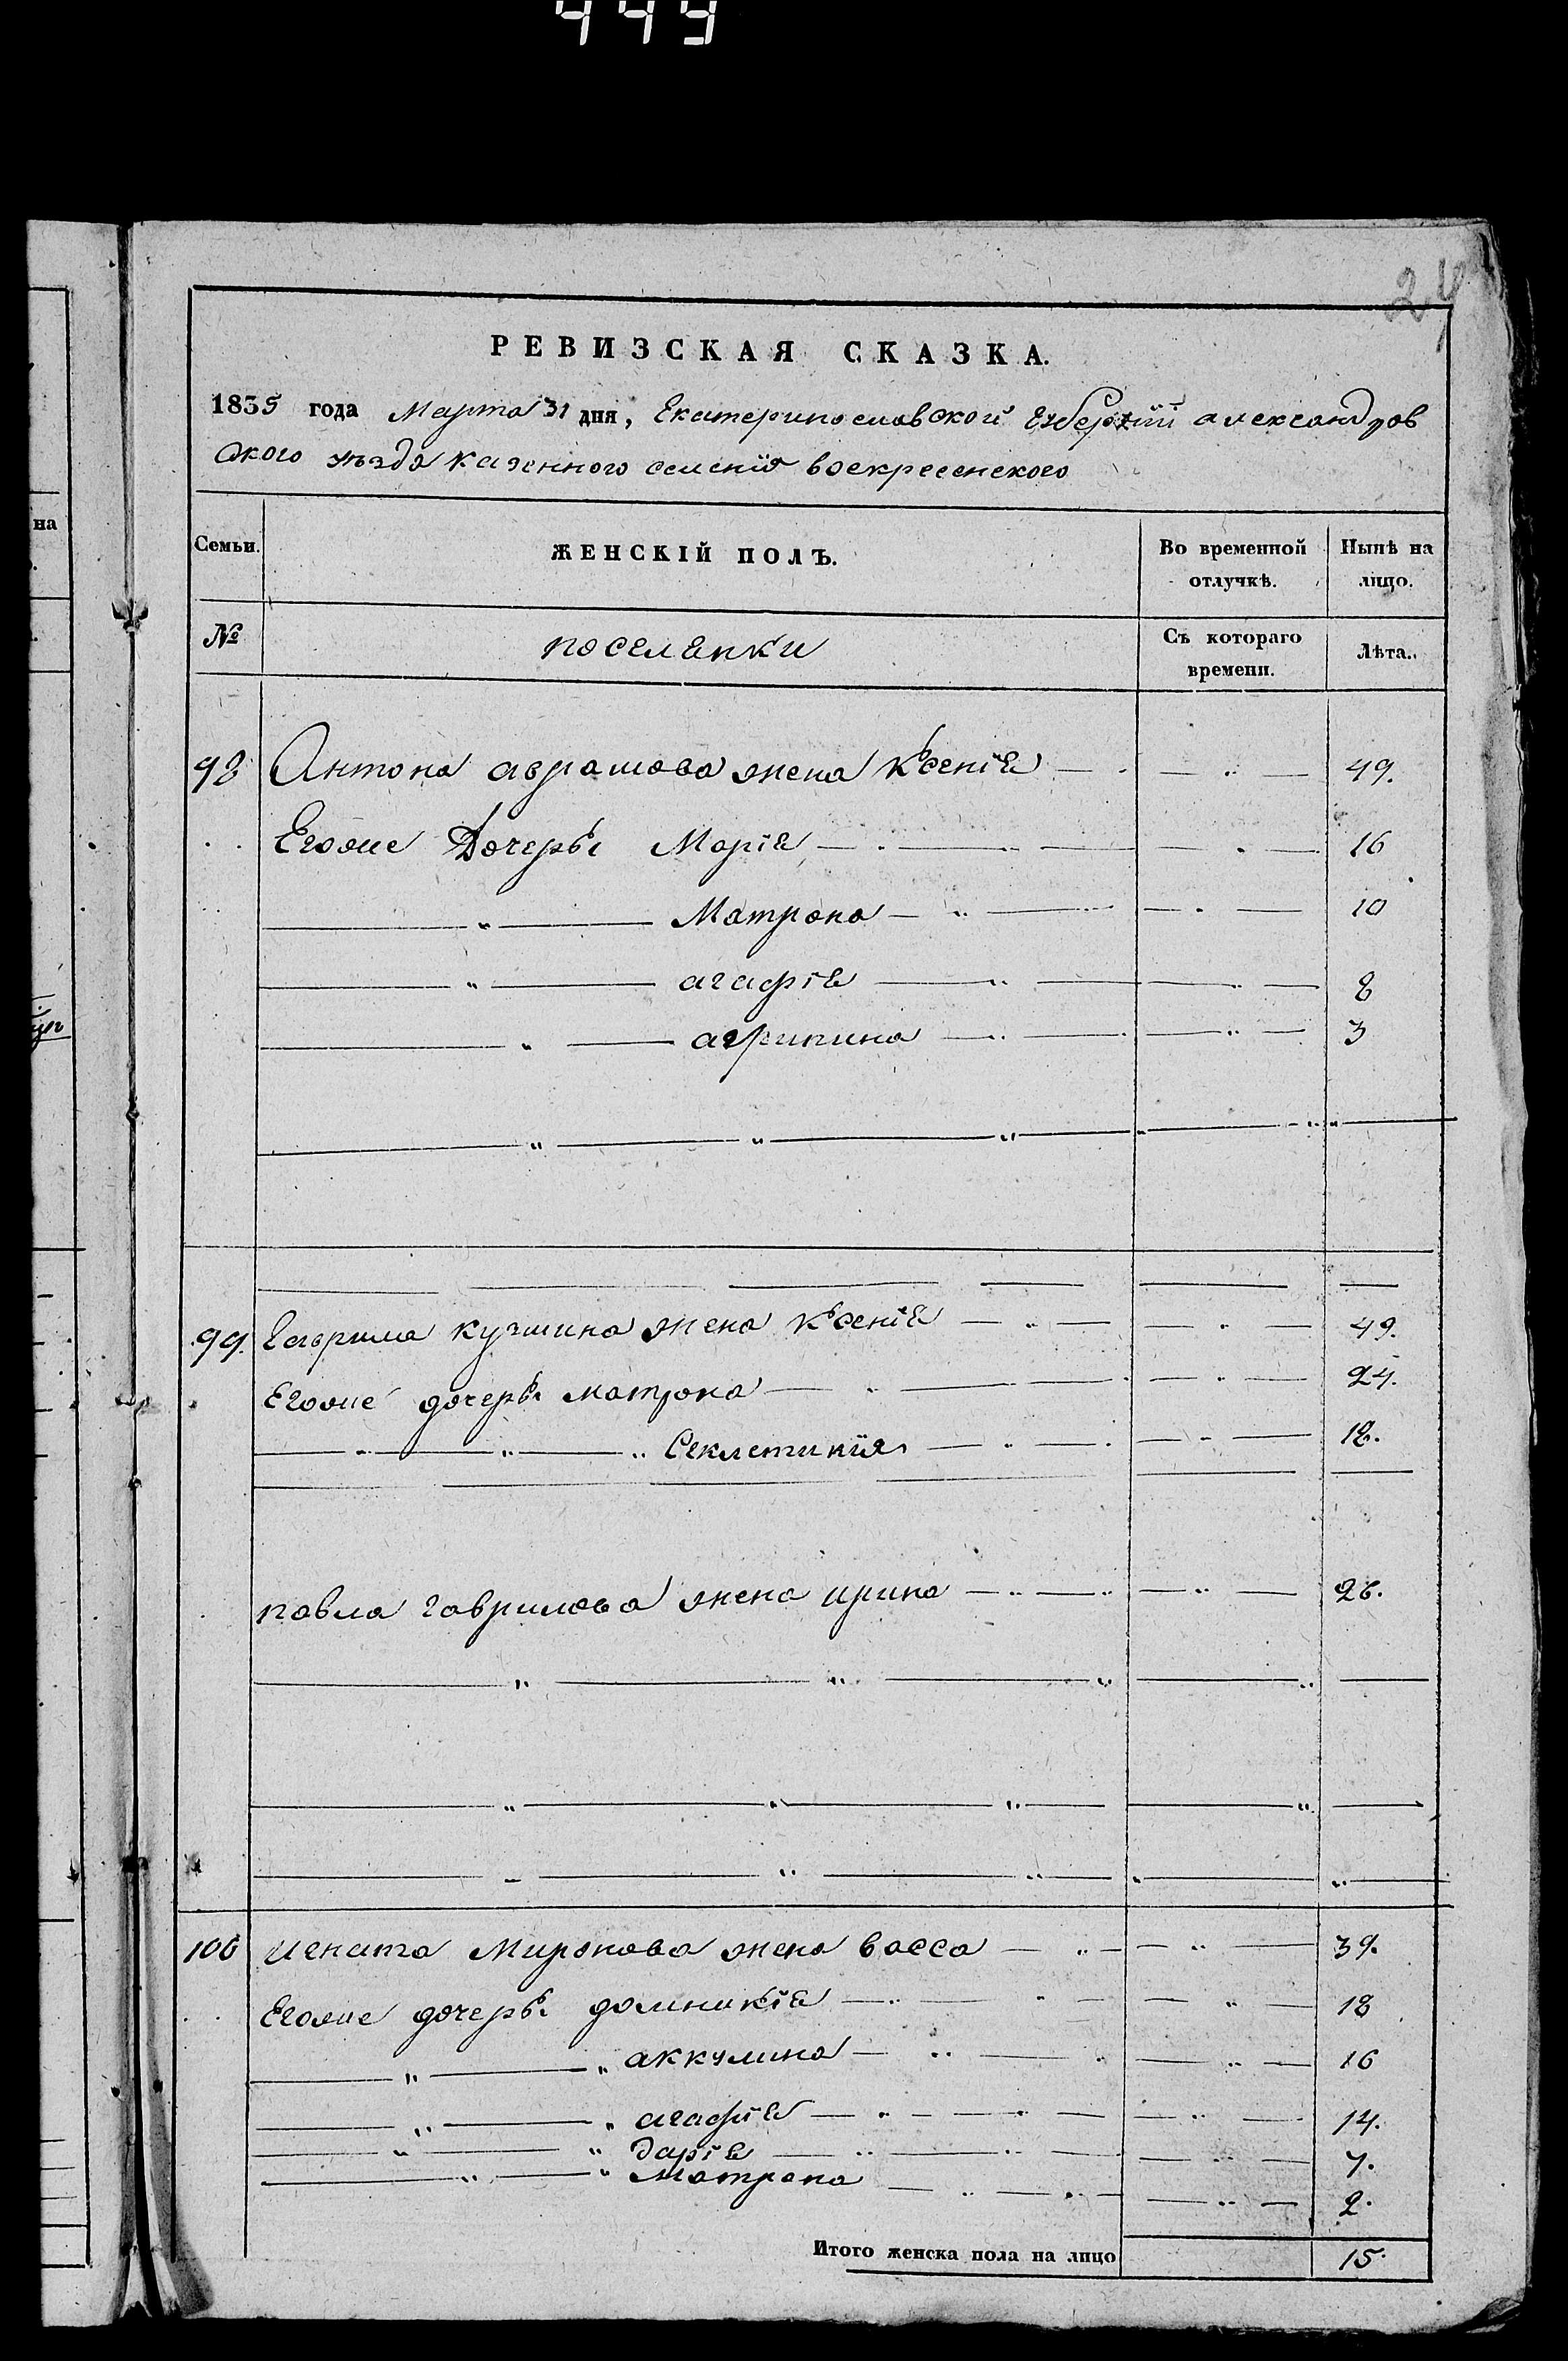 449
24
РЕВИЗСКАЯ СКАЗКА.
1835 года Марта 31 дня, Екатеринославской Губернїи александров
ского уѣзда казенного селенїя воскресенского
на
Семьи. ЖЕНСКІЙ ПОЛЪ. Во временной отлучкѣ. Нынѣ на лицо.
№ поселянки Съ котораго времени. Лѣта.
98 Антона аврамова жена Ксенїя 49.
Егоже Дочерьи Марїя 16
Матрона 10
агафїя 8
агрипина 3
99. Гаврила кузмина жена Ксенїя 49.
Егоже дочерьи матрона 24.
Секлетинїя 18.
павла гаврилова жена ирина 26.
100 игната Миронова жена васса 39.
Егоже дочерьи домникїя 18
аккулина 16
агафїя 14.
дарїя 7.
матрона 2.
Итого женска пола на лицо 15.